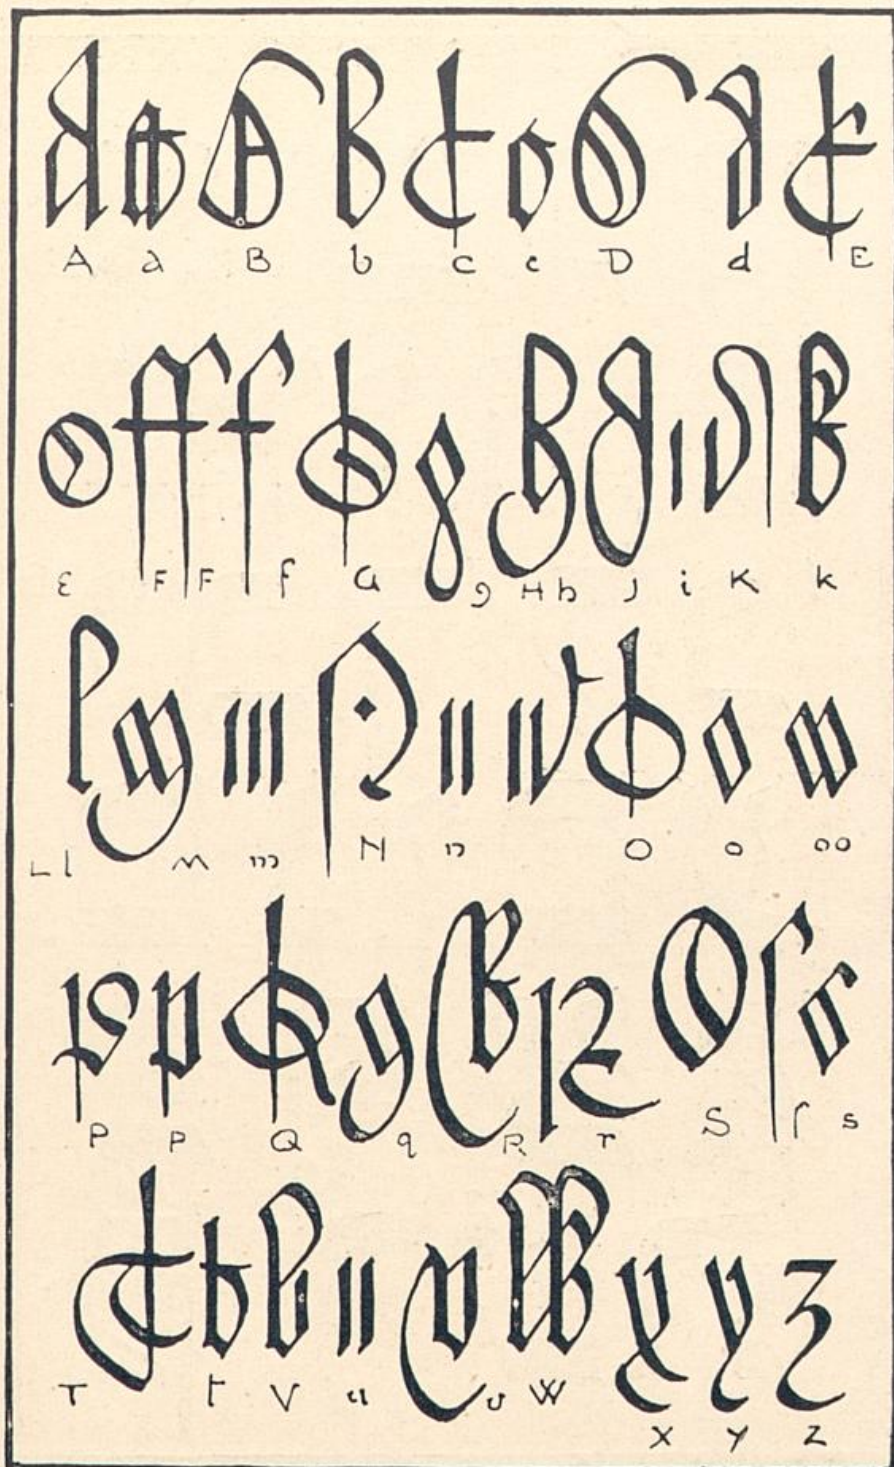 A a B b C c D d E
ε F F f G g H h J i K k
L l M m N n O o oo
P p Q q R r S ſ s
T t V u v W
X Y Z